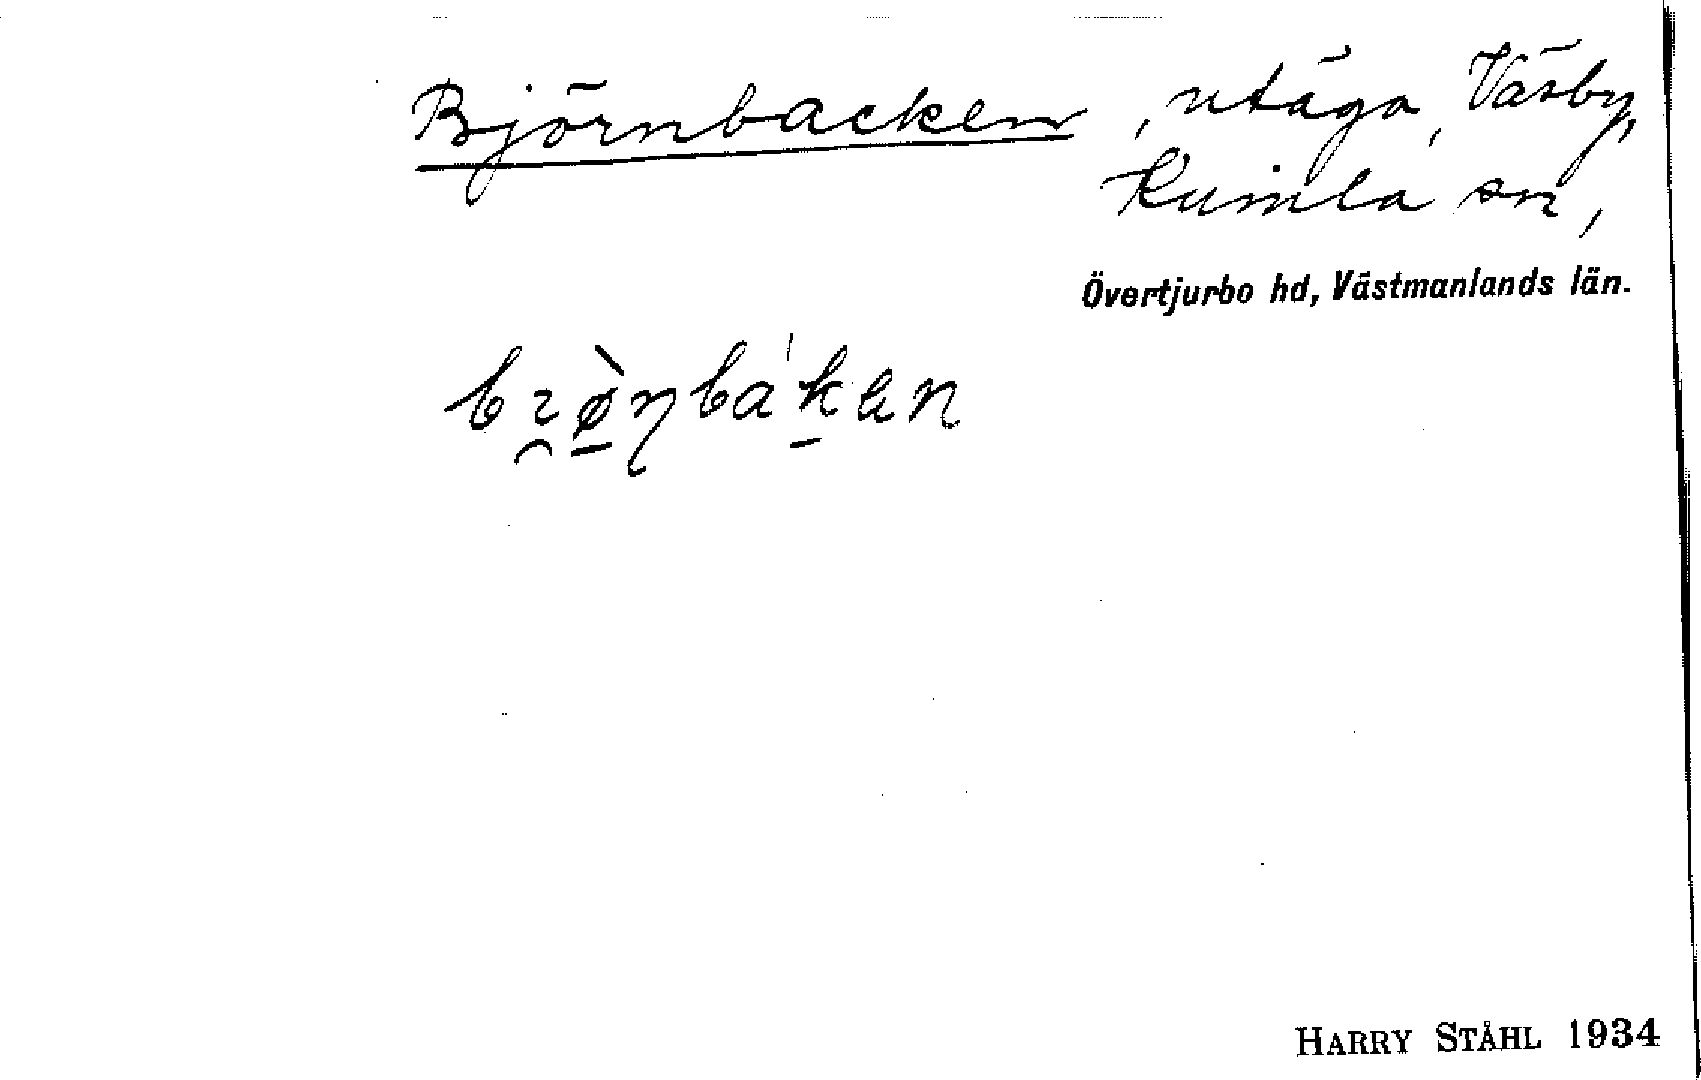 Björnbacken, utäga, Väsby,
Kumla sn,
Övertjurbo hd, Västmanlands län.
HARRY STÅHL 1934